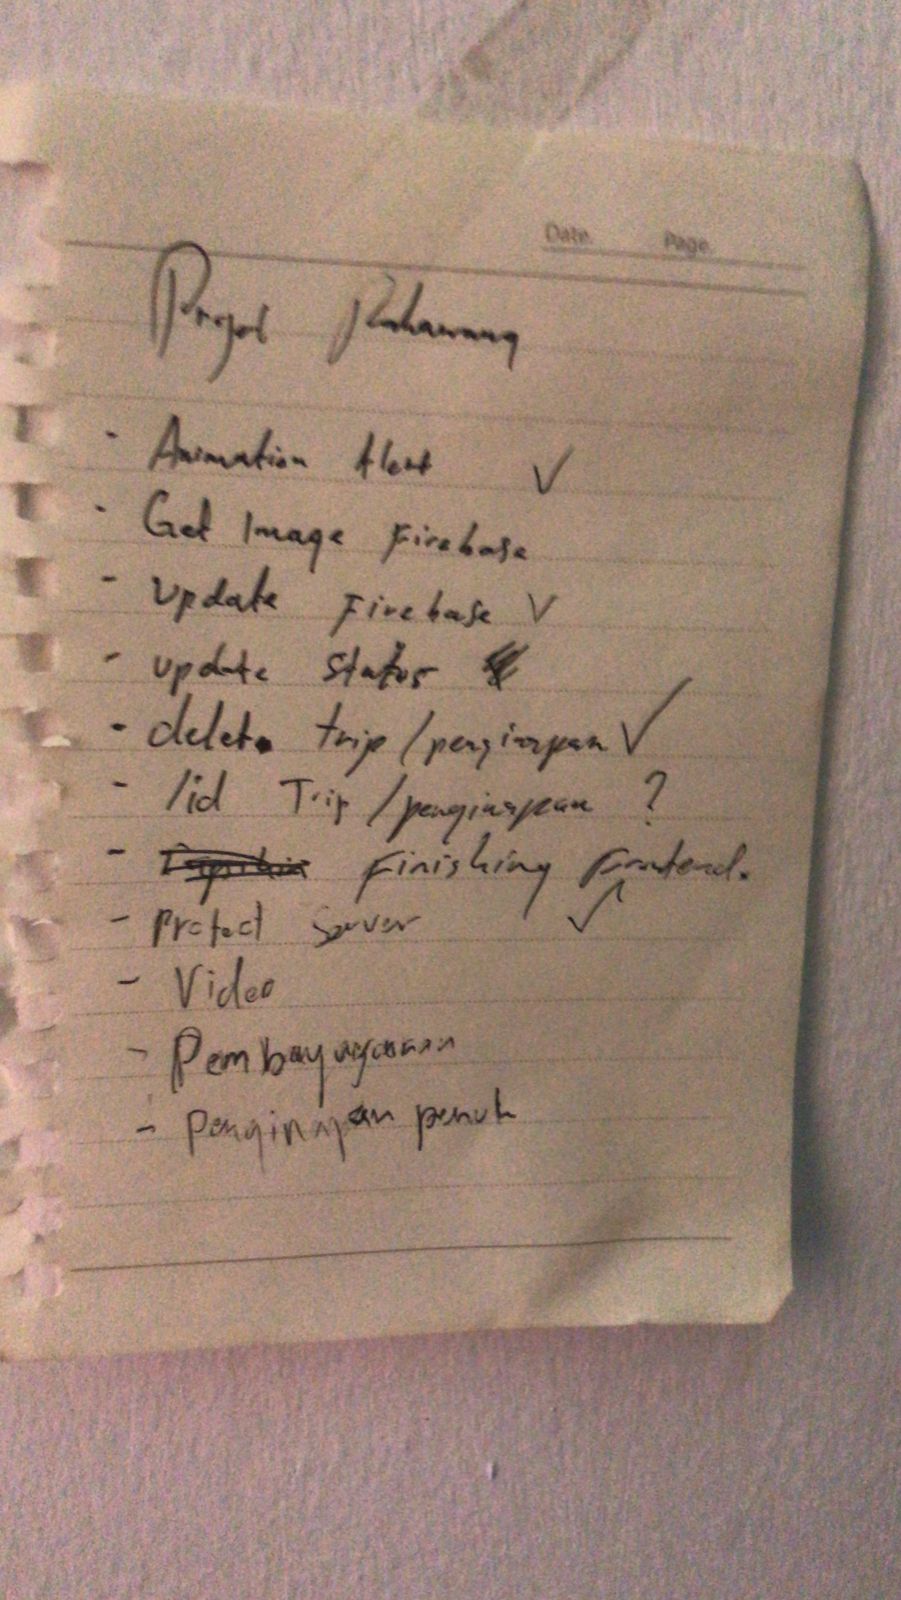 Date Page
Pahawang
- Animation Alert ✓
- Get Image Firebase
- Update Firebase ✓
- update status
- delete trip/penginapan ✓
- /id Trip/penginapan ?
- Finishing Frontend.
- Protect Server ✓
- Video
- Pembayaran
- Penginapan penuh